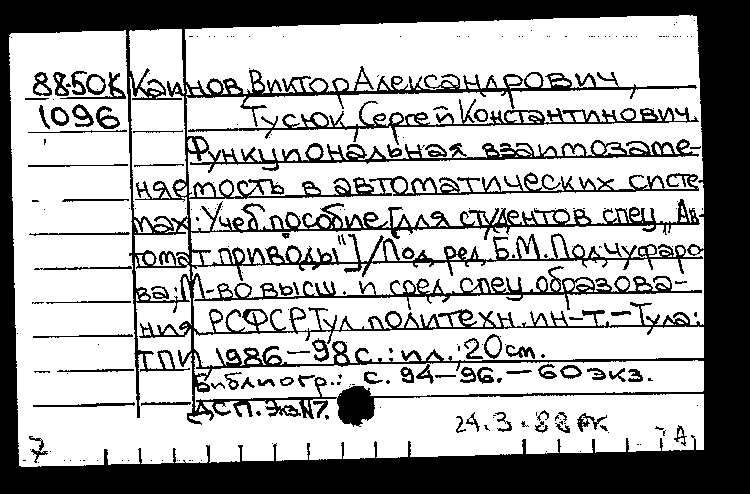 88-50К Каинов, Виктор Александрович,
1096 Тусюк, Сергей Константинович.
Функциональная взаимозаме-
няемость в автоматических систе-
мах: Учеб. пособие [для студентов спец. „Ав-
томат. приводы"] / Под ред. Б.М. Подчуфаро-
ва; М-во высш. и сред. спец. образова-
ния РСФСР, Тул. политехн. ин-т. - Тула:
ТПИ, 1986 - 98 с.: ил.; 20 см.
Библиогр.: с. 94-96. - 60 экз.
ДСП. Экз. N7.
24.3.88 РК
7